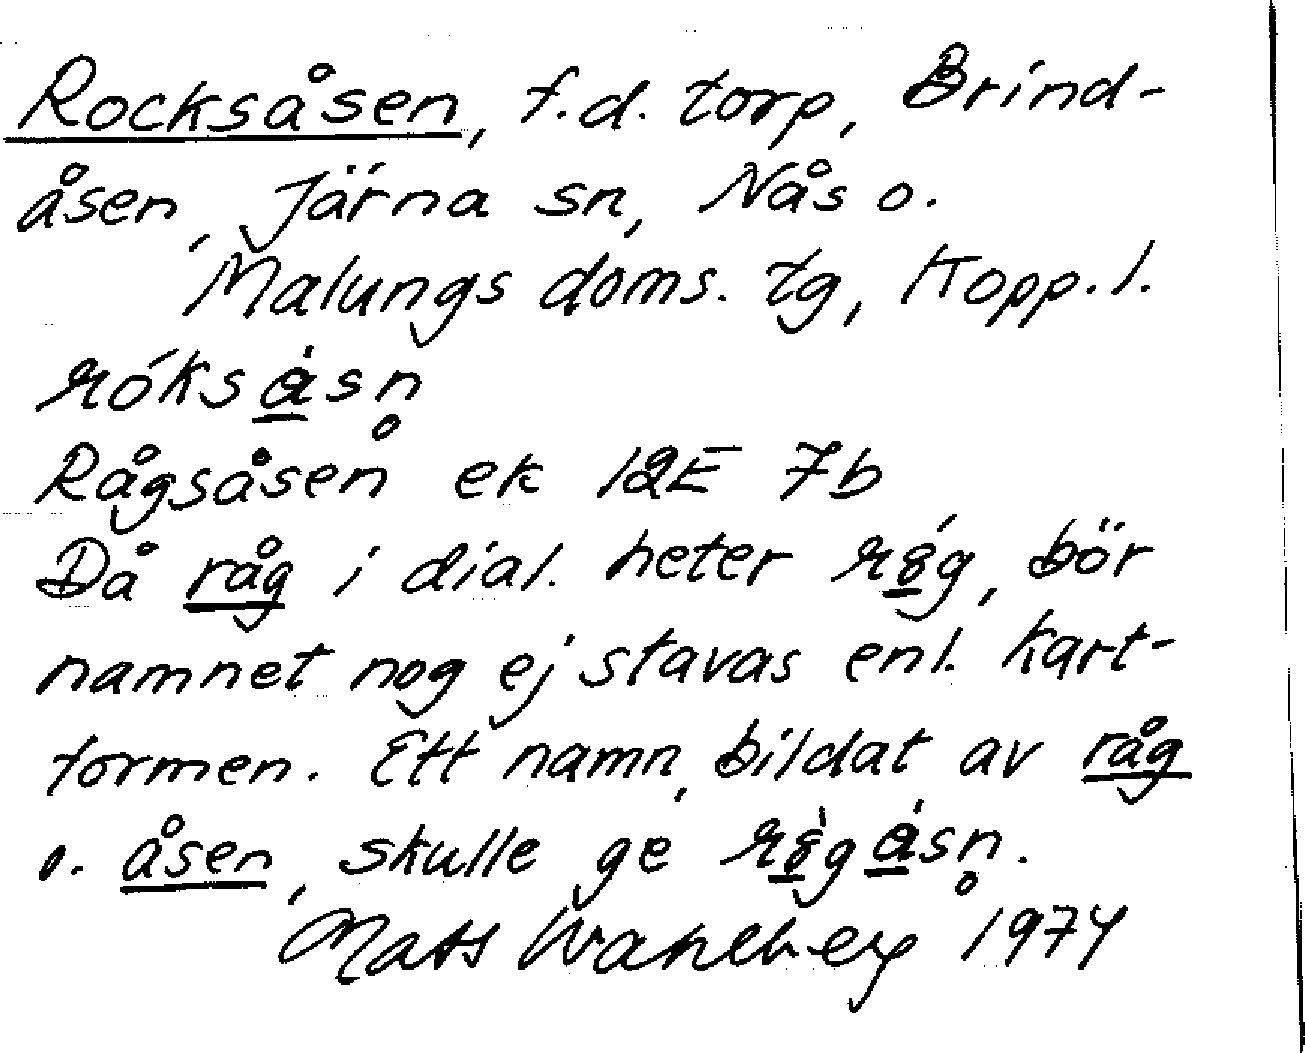 Rocksåsen, f.d. torp, Brind-
åsen, Järna sn, Nås o.
Malungs doms. tg, Kopp. l.
róksåsn̥
Rågsåsen ek 12E 7b
Då råg i dial. heter róg, bör
namnet nog ej stavas enl. kart-
formen. Ett namn, bildat av råg
o. åsen, skulle ge rógåsn̥.
Mats Wahlberg 1974